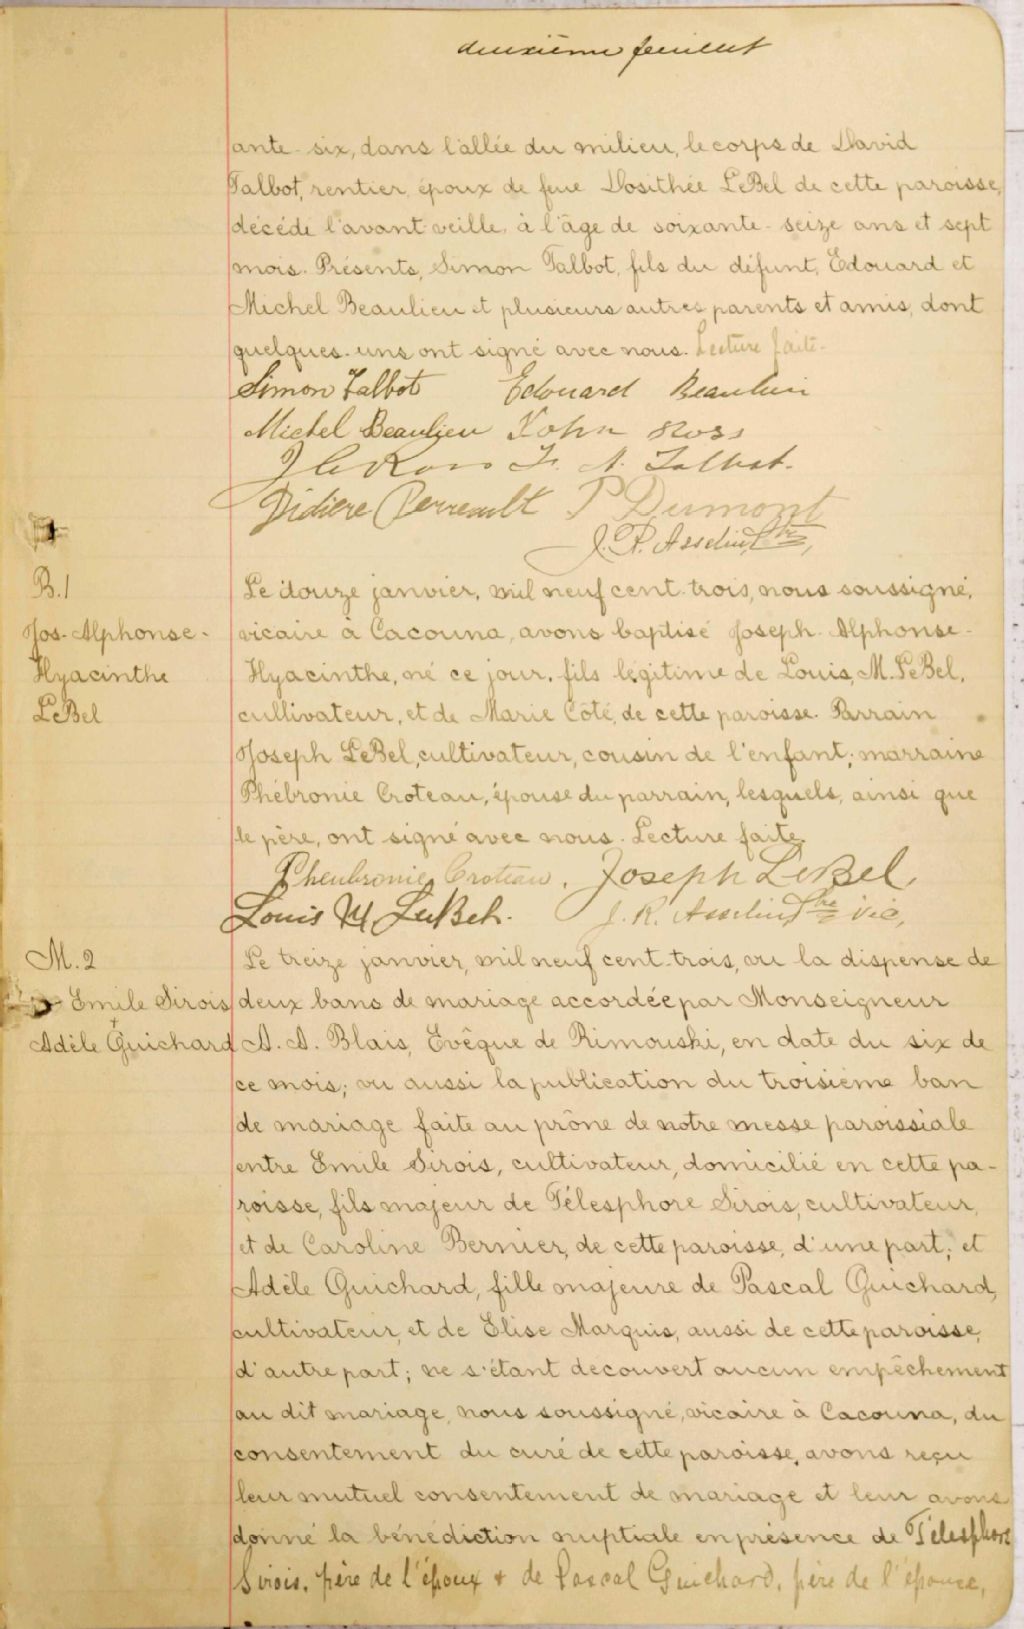 deuxième feuillet
ante-six, dans l'allée du milieu, le corps de David
Talbot, rentier, époux de feue Dosithée LeBel de cette paroisse,
décédé l'avant veille, à l'âge de soixante-seize ans et sept
mois. Présents, Simon Talbot, fils du défunt, Edouard et
Michel Beaulieu et plusieurs autres parents et amis, dont
quelques-uns ont signé avec nous. Lecture faite.
Simon Talbot Edouard Beaulieu
Michel Beaulieu John Ross
Talbot.
Didière Perreault P Dumont
J. R. Asselin Ptre,
B.1
Jos-Alphonse-
Hyacinthe
LeBel
Le douze janvier, mil neuf cent-trois, nous soussigné,
vicaire à Cacouna, avons baptisé Joseph-Alphonse-
Hyacinthe, né ce jour, fils légitime de Louis, M. LeBel,
cultivateur, et de Marie Côté, de cette paroisse. Parrain
Joseph LeBel, cultivateur, cousin de l'enfant; marraine
Phébronie Croteau, épouse du parrain, lesquels, ainsi que
le père, ont signé avec nous. Lecture faite.
Pheubronie Croteau. Joseph LeBel,
Louis M LeBel. J. R. Asselin Ptre vic,
M.2
Emile Sirois
+
Adèle Guichard
Le treize janvier, mil neuf cent-trois, vu la dispense de
deux bans de mariage accordée par Monseigneur
A. A. Blais, Evêque de Rimouski, en date du six de
ce mois; vu aussi la publication du troisième ban
de mariage faite au prône de notre messe paroissiale
entre Emile Sirois, cultivateur, domicilié en cette pa-
roisse, fils majeur de Télesphore Sirois, cultivateur,
et de Caroline Bernier, de cette paroisse, d'une part; et
Adèle Guichard, fille majeure de Pascal Guichard,
cultivateur, et de Elise Marquis, aussi de cette paroisse,
d'autre part; ne s'étant decouvert aucun empêchement
au dit mariage, nous soussigné, vicaire à Cacouna, du
consentement du curé de cette paroisse, avons reçu
leur mutuel consentement de mariage et leur avons
donné la bénédiction nuptiale en présence de Télesphore
Sirois, père de l'époux + de Pascal Guichard, père de l'épouse,